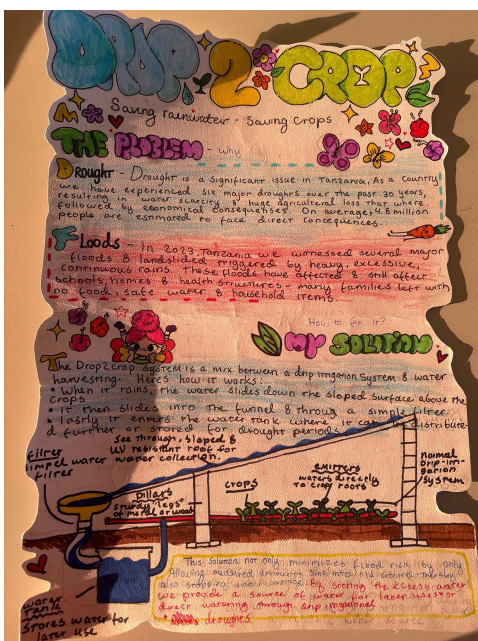 DROP 2 CROP
Saving rainwater - Saving Crops
THE PROBLEM - why
Drought - Drought is a Significant issue in Tanzania, As a country
we have experienced six major droughts over the past 30 years,
resulting in water scarcity & huge agricultural loss that where
followed by economical consequenses. On average, 4.8 million
people are esmmared to face direct concequences.
Floods - In 2023, Tanzania we witnessed several major
floods & landslided triggered by heavy, excessive,
continuous rains. These floods have affected & still affect
Schools, homes & health structures - many families left with
no food, safe water & household items.
How to fix it?
MY SOLUTION
The Drop2Crop System is a mix between a drip irrigation System & water
harvesting. Here's how it works:
• When it rains, the water slides down the sloped surface above the
crops
• it then slides into the funnel & throug a simple filter
• lastly it enters the water tank where it can be distribute-
d further or stored for drought periods.
See through, sloped &
UV resistant roof for
water collection.
filter
simpel water
filter
pillars
sturdy legs
of metal or wood
crops
emitters
waters directly
to crop roots
normal
Drip-irri-
gation
System
water
Tank
Stores water for
later use
This Solution not only minimizes flood risk by only
Allowing measured amounts sink into the ground - thereby
also stopping water By storing the excess water
we provide a source of water for later uses or
direct watering through drip irrigation
droughts